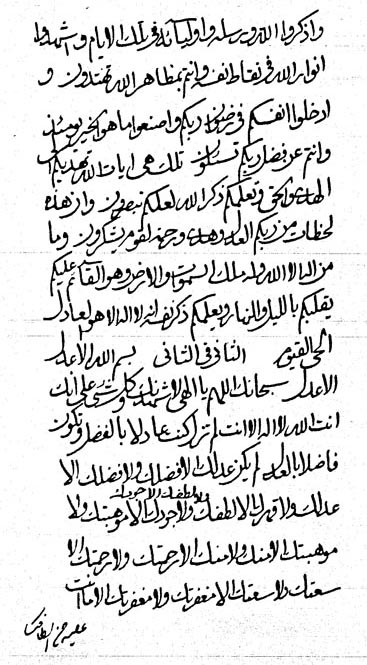 واذكروا الله ورسله واوليائه في تلك الايام واشهدوا
انوار الله في نقاط انفسه وانتم بمظاهر الله تهتدون و
ادخلوا انفسكم في رضوان ربكم واصنعوا ما هو الخير يومئذ
وانتم عن فضل ربكم تسئلون تلك هي ايات الله تهديكم
الهدى والحق وتعلمكم ذكر الله لعلكم تبصرون وان هذه
لحظات من ربكم العدل وهدى ورحمة لقوم يشكرون وما
من اله الا الله وله ملك السموات والارض وهو القائم عليكم
يقلبكم بالليل والنهار ويعلمكم ذكر نفسه انه لا اله الا هو العادل
الحي القيوم الثاني في الثاني بسم الله الاعدل
الاعدل سبحانك اللهم يا الهي لاشهدنك وكل شيء على انك
انت الله لا اله الا انت لم تزل كنت عادلا بالفضل وتكون
فاضلا بالعدل لم يكن عدلك الا فضلك ولا فضلك الا
عدلك ولا قهرك الا لطفك ولا لطفك الا جودك ولا جودك الا موهبتك ولا
موهبتك الا منك ولا منك الا رحمتك ولا رحمتك الا
سعتك ولا سعتك الا مغفرتك ولا مغفرتك الا ما انت
عليه من